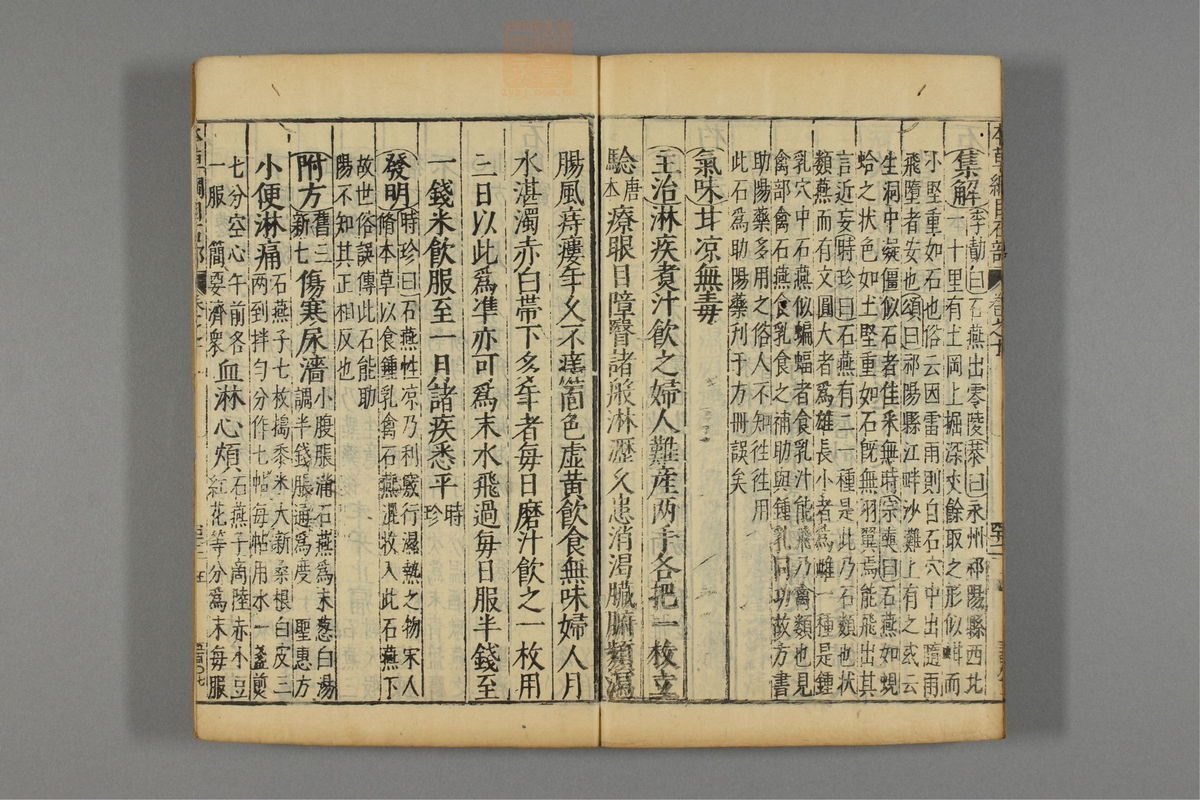 集解李勣曰石燕出零陵恭曰永州祁陽縣西北
一十里有土岡上掘深丈餘取之形似蚶而
小堅重如石也俗云因雷雨則自石穴中出隨雨
飛墮者妄也頌曰祁陽縣江畔沙灘上有之或云
生洞中凝僵似石者佳采無時宗奭曰石燕如蜆
蛤之狀色如土堅重如石既無羽翼焉能飛出其
言近妄時珍曰石燕有二一種是此乃石類也狀
類燕而有文圓大者為雄長小者為雌一種是鍾
乳穴中石燕似蝙蝠者食乳汁能飛乃禽類也見
禽部禽石燕食乳食之補助與鍾乳同功故方書
助陽藥多用之俗人不知往往用
此石為助陽藥刋于方冊誤矣
氣味甘凉無毒
主治淋疾煑汁飲之婦人難產两手各把一枚立
驗唐本療眼目障瞖諸般淋瀝久患消渴臟腑頻瀉
腸風痔瘻年久不瘥面色虛黃飲食無味婦人月
水湛濁赤白帶下多年者每日磨汁飲之一枚用
三日以此為凖亦可為末水飛過每日服半錢至
一錢米飲服至一月諸疾悉平時珍
發明時珍曰石燕性凉乃利竅行濕熱之物宋人
脩本草以食鍾乳禽石燕混收入此石燕下
故世俗誤傳此石能助
陽不知其正相反也
附方舊三新七傷寒尿澀小腹脹滿石燕為末葱白湯
調半錢脹通為度 聖惠方
小便淋痛石燕子七枚擣黍米大新桑根白皮三
两剉拌勻分作七帖每帖用水一盞煎
七分空心午前各
一服 簡要濟衆血淋心煩石燕子商陸赤小豆
紅花等分為末每服